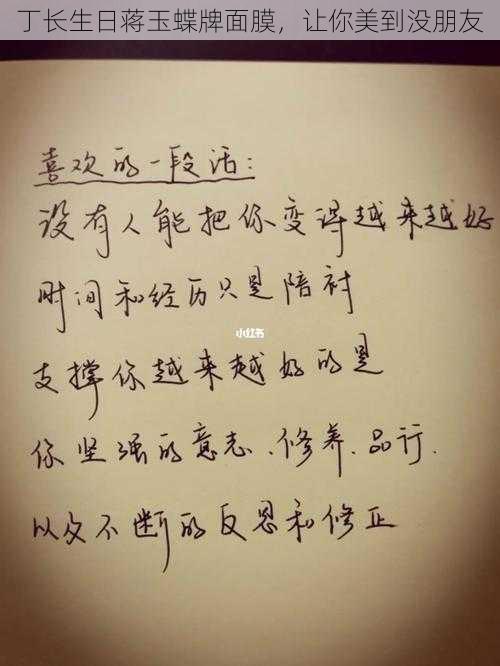 丁长生日蒋玉蝶牌面膜，让你美到没朋友
喜欢的一段话：
没有人能把你变得越来越好
时间和经历只是陪衬
小红书
支撑你越来越好的是
你坚强的意志、修养、品行.
以及不断的反思和修正